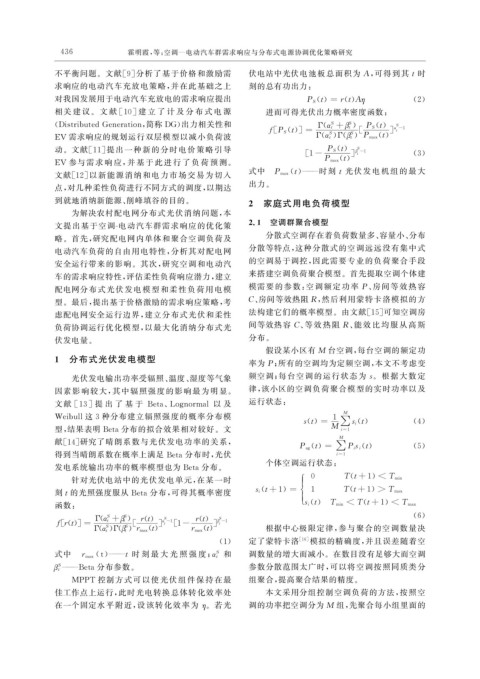 436
霍明霞,等:空调—电动汽车群需求响应与分布式电源协调优化策略研究
不平衡问题。文献[9]分析了基于价格和激励需
求响应的电动汽车充放电策略,并在此基础之上
对我国发展用于电动汽车充放电的需求响应提出
相关建议。文献[10]建立了计及分布式电源
(Distributed Generation,简称 DG)出力相关性和
EV 需求响应的规划运行双层模型以减小负荷波
动。文献[11]提出一种新的分时电价策略引导
EV 参与需求响应,并基于此进行了负荷预测。
文献[12]以新能源消纳和电力市场交易为切入
点,对几种柔性负荷进行不同方式的调度,以期达
到就地消纳新能源、削峰填谷的目的。
为解决农村配电网分布式光伏消纳问题,本
文提出基于空调-电动汽车群需求响应的优化策
略。首先,研究配电网内单体和聚合空调负荷及
电动汽车负荷的自由用电特性,分析其对配电网
安全运行带来的影响。其次,研究空调和电动汽
车的需求响应特性,评估柔性负荷响应潜力,建立
配电网分布式光伏发电模型和柔性负荷用电模
型。最后,提出基于价格激励的需求响应策略,考
虑配电网安全运行边界,建立分布式光伏和柔性
负荷协调运行优化模型,以最大化消纳分布式光
伏发电量。
1 分布式光伏发电模型
光伏发电输出功率受辐照、温度、湿度等气象
因素影响较大,其中辐照强度的影响最为明显。
文献[13]提出了基于 Beta、Lognormal 以及
Weibull 这 3 种分布建立辐照强度的概率分布模
型,结果表明 Beta 分布的拟合效果相对较好。文
献[14]研究了晴朗系数与光伏发电功率的关系,
得到当晴朗系数在概率上满足 Beta 分布时,光伏
发电系统输出功率的概率模型也为 Beta 分布。
针对光伏电站中的光伏发电单元,在某一时
刻 t 的光照强度服从 Beta 分布,可得其概率密度
函数:
f[r(t)] = Γ(αtS + βtS) / Γ(αtS)Γ(βtS) [r(t) / rmax(t)]αtS−1 [1 − r(t) / rmax(t)]βtS−1
(1)
式中 rmax(t)——t 时刻最大光照强度;αtS 和
βtS——Beta 分布参数。
MPPT 控制方式可以使光伏组件保持在最
佳工作点上运行,此时光电转换总体转化效率处
在一个固定水平附近,设该转化效率为 η。若光
伏电站中光伏电池板总面积为 A,可得到其 t 时
刻的总有功出力:
PS(t) = r(t)Aη (2)
进而可得光伏出力概率密度函数:
f[PS(t)] = Γ(αtS + βtS) / Γ(αtS)Γ(βtS) [PS(t) / Pmax(t)]αtS−1
[1 − PS(t) / Pmax(t)]βtS−1 (3)
式中 Pmax(t)——时刻 t 光伏发电机组的最大
出力。
2 家庭式用电负荷模型
2.1 空调群聚合模型
分散式空调存在着负荷数量多、容量小、分布
分散等特点,这种分散式的空调远远没有集中式
的空调易于调控,因此需要专业的负荷聚合手段
来搭建空调负荷聚合模型。首先提取空调个体建
模需要的参数:空调额定功率 P、房间等效热容
C、房间等效热阻 R,然后利用蒙特卡洛模拟的方
法构建它们的概率模型。由文献[15]可知空调房
间等效热容 C、等效热阻 R、能效比均服从高斯
分布。
假设某小区有 M 台空调,每台空调的额定功
率为 P;所有的空调均为定额空调,本文不考虑变
频空调;每台空调的运行状态为 s。根据大数定
律,该小区的空调负荷聚合模型的实时功率以及
运行状态:
s(t) = 1/M ∑i=1M si(t) (4)
Pag(t) = ∑i=1M Pisi(t) (5)
个体空调运行状态:
si(t+1) = { 0 T(t+1) < Tmin
1 T(t+1) > Tmax
si(t) Tmin < T(t+1) < Tmax
(6)
根据中心极限定律,参与聚合的空调数量决
定了蒙特卡洛[16]模拟的精确度,并且误差随着空
调数量的增大而减小。在数目没有足够大而空调
参数分散范围太广时,可以将空调按照同质类分
组聚合,提高聚合结果的精度。
本文采用分组控制空调负荷的方法,按照空
调的功率把空调分为 M 组,先聚合每小组里面的